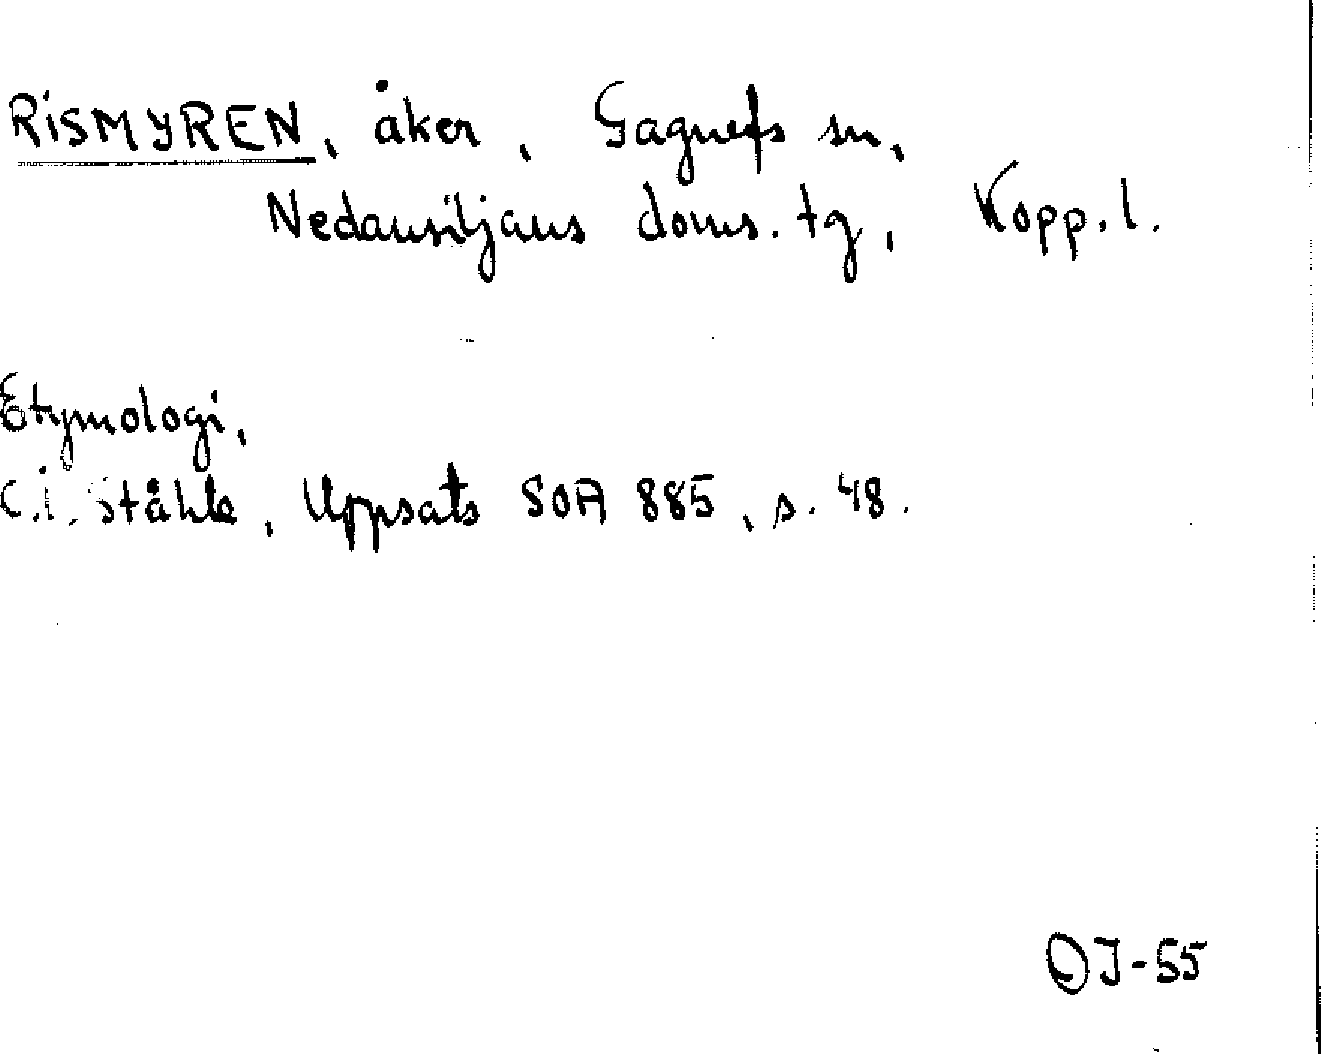 RISMYREN, åker, Gagnefs sn,
Nedansiljans doms. tg, Kopp. l.
Etymologi,
C.I. Ståhle, Uppsats SOA 885, s. 48.
OJ-55